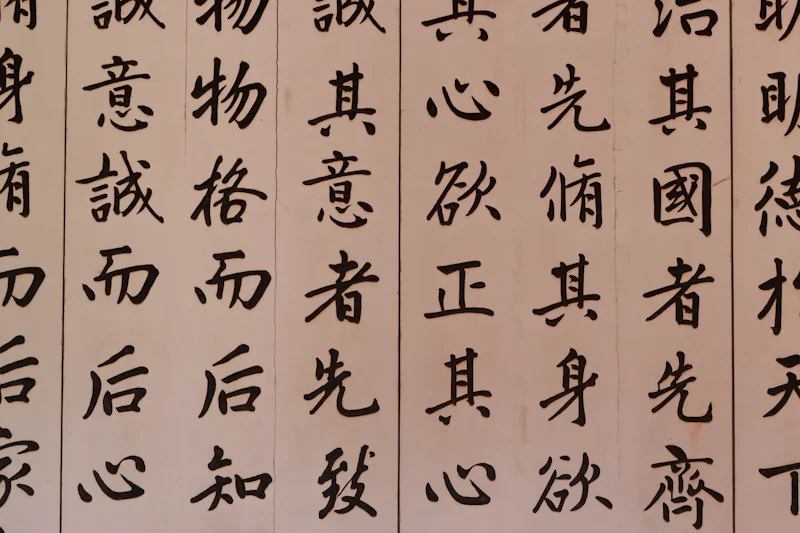 明明德於天下
治其國者先齊
者先脩其身欲
其心欲正其心
誠其意者先致
物物格而后知
誠意誠而后心
脩身脩而后家